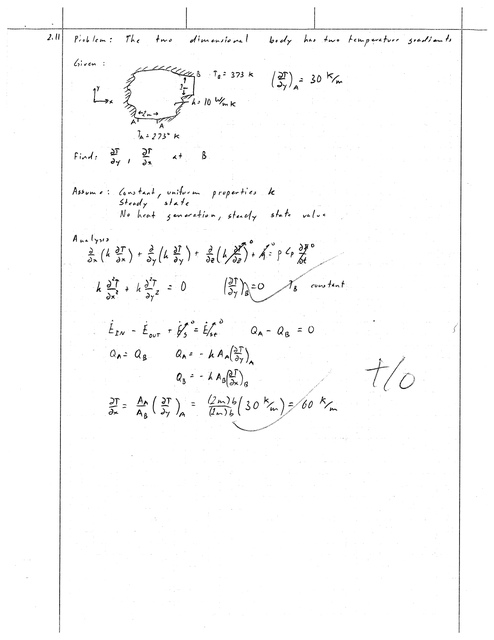 2.11 Problem: The two dimensional body has two temperature gradients
Given:
B T_B = 373 K (∂T/∂y)_A = 30 K/m
y x 1m k=10 W/mK
2m
A A
T_A = 273° K
Find: ∂T/∂y, ∂T/∂x at B
Assume: Constant, uniform properties k
Steady state
No heat generation, steady state value
Analysis
∂/∂x (k ∂T/∂x) + ∂/∂y (k ∂T/∂y) + ∂/∂z (k ∂T/∂z)^0 + q̇^0 = ρ Cp ∂T/∂t^0
k ∂²T/∂x² + k ∂²T/∂y² = 0 (∂T/∂y)_B = 0 T_B constant
Ė_IN - Ė_OUT + Ė_g^0 = Ė_st^0 Q_A - Q_B = 0
Q_A = Q_B Q_A = - k A_A (∂T/∂y)_A
Q_B = - k A_B (∂T/∂x)_B
∂T/∂x = A_A/A_B (∂T/∂y)_A = (2m)b/(1m)b (30 K/m) = 60 K/m